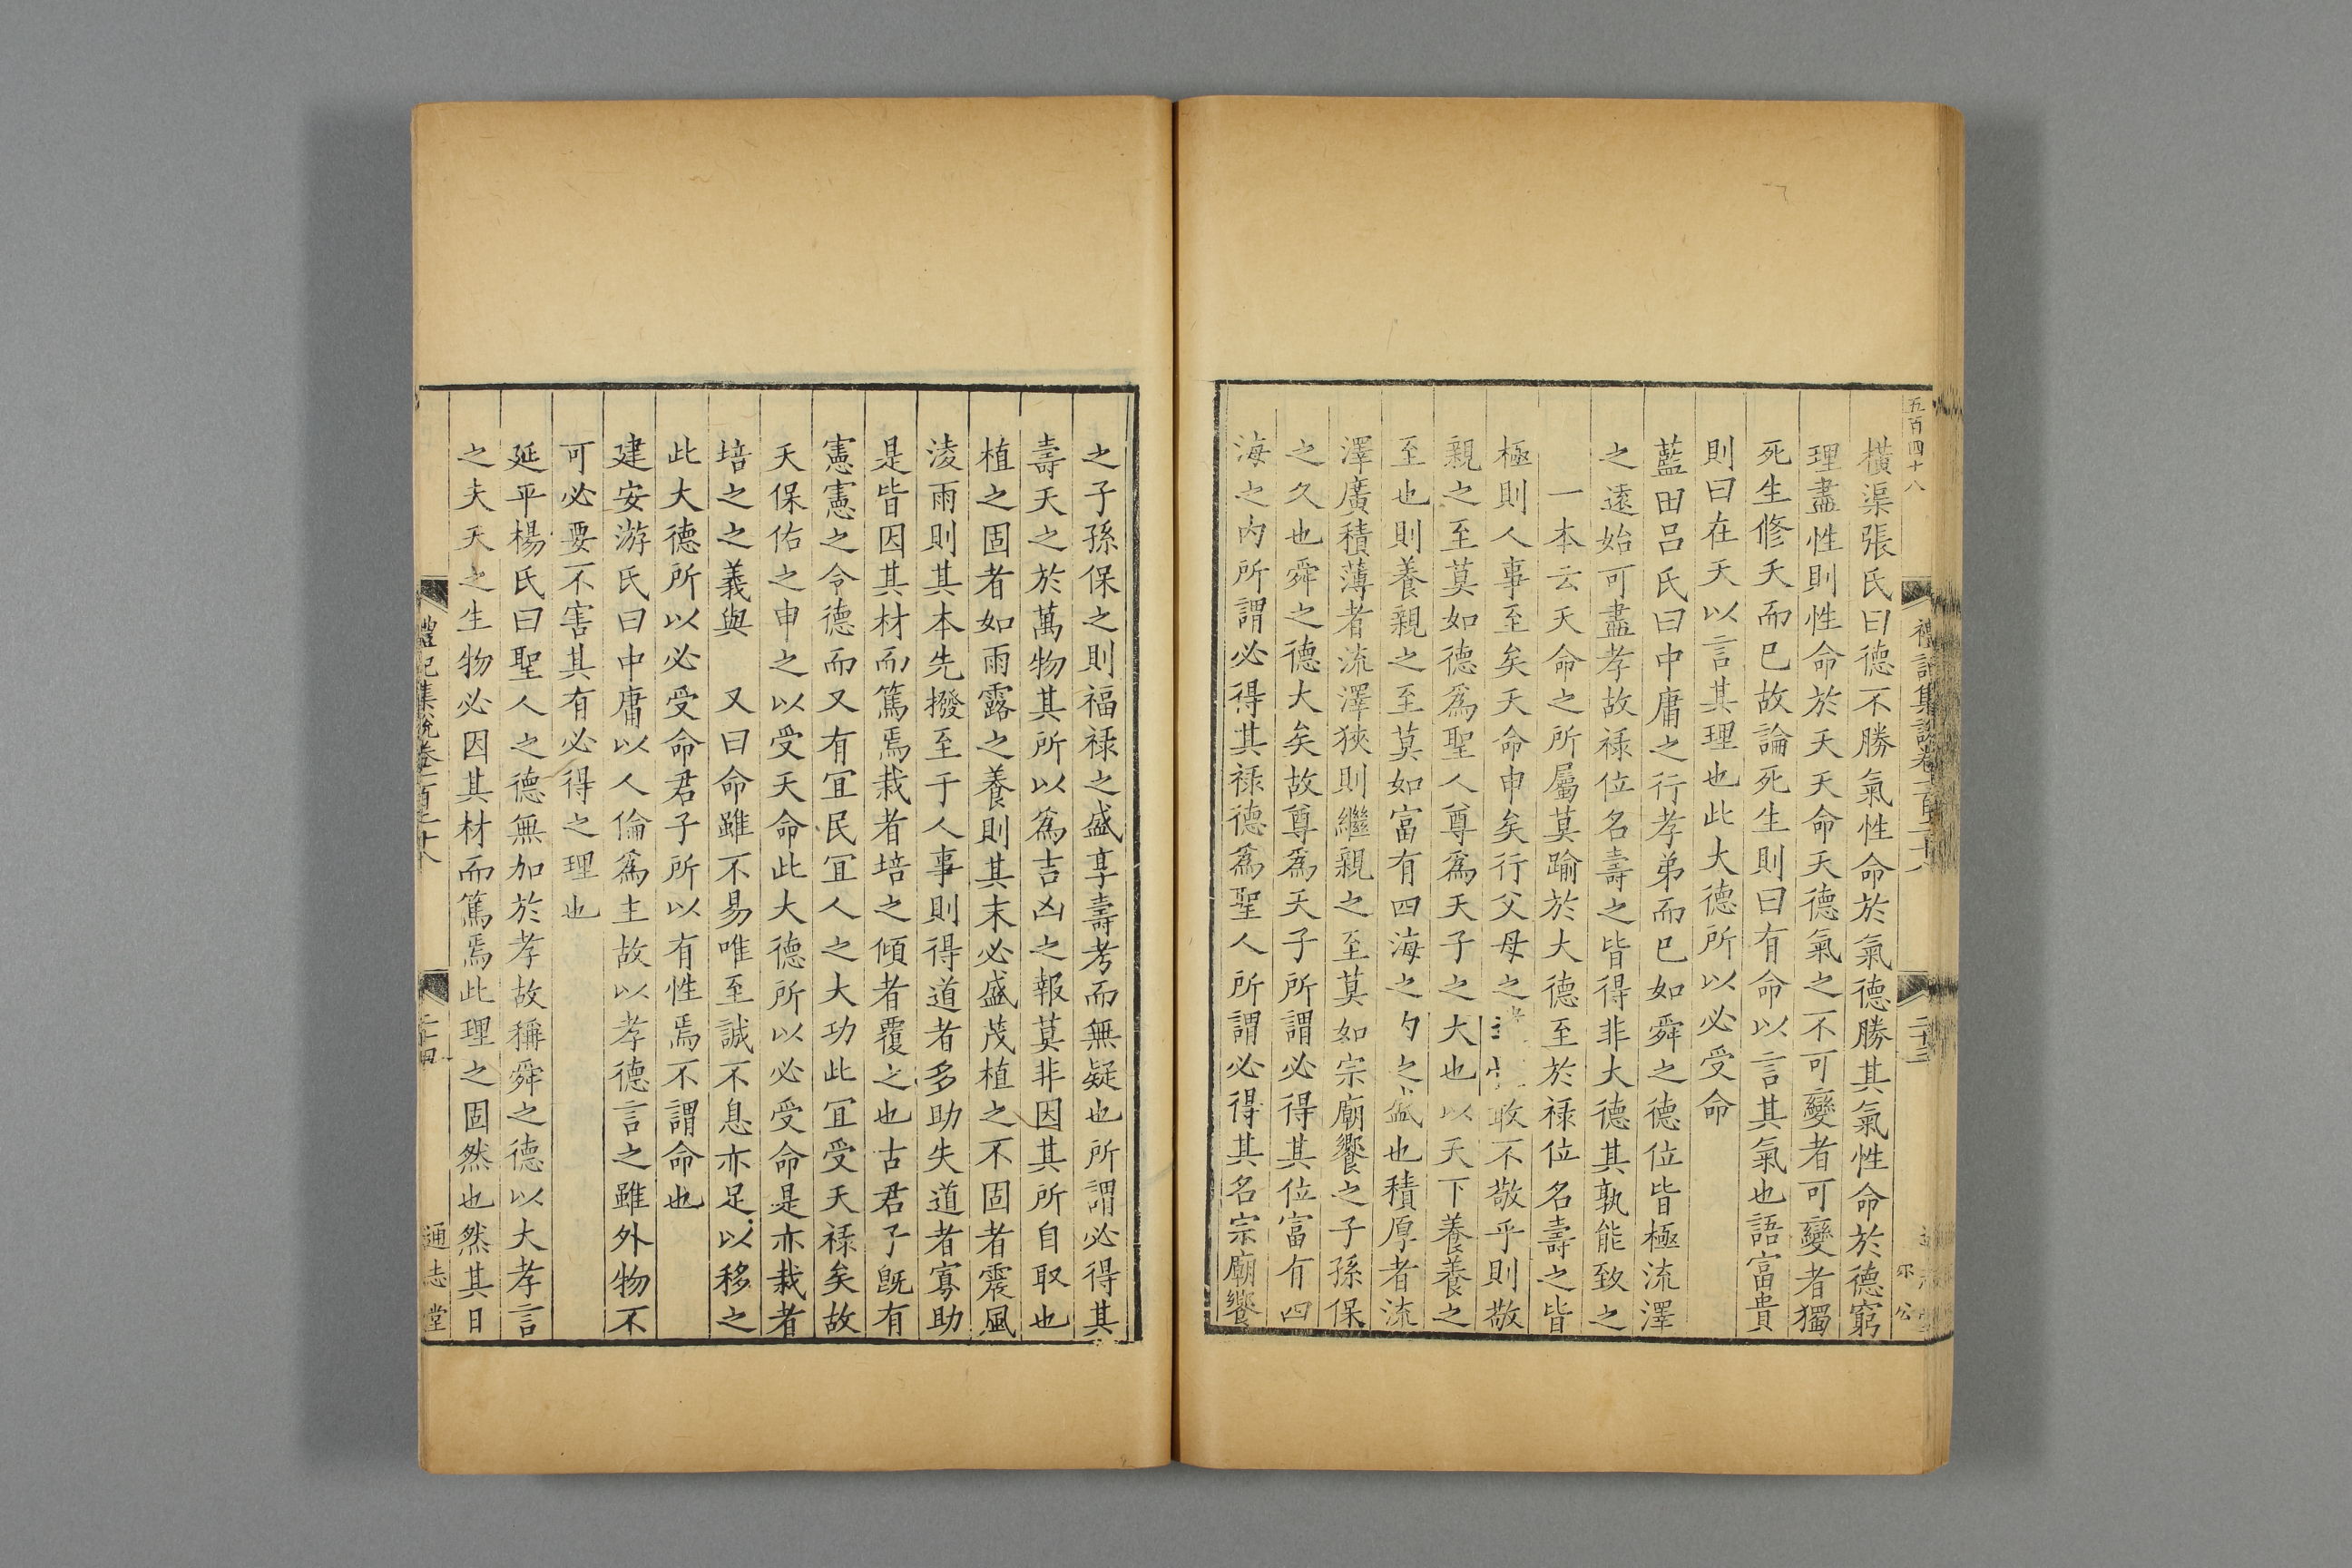 五百四十八
橫渠張氏曰德不勝氣性命於氣德勝其氣性命於德窮
理盡性則性命於天天命天德氣之不可變者可變者獨
死生修夭而已故論死生則曰有命以言其氣也語富貴
則曰在天以言其理也此大德所以必受命
藍田呂氏曰中庸之行孝弟而已如舜之德位皆極流澤
之遠始可盡孝故祿位名壽之皆得非大德其孰能致之
一本云天命之所屬莫踰於大德至於祿位名壽之皆
極則人事至矣天命申矣行父母之敢不敬乎則敬
親之至莫如德爲聖人尊爲天子之大也以天下養養之
至也則養親之至莫如富有四海之内之盛也積厚者流
澤廣積薄者流澤狹則繼親之至莫如宗廟饗之子孫保
之久也舜之德大矣故尊爲天子所謂必得其位富有四
海之内所謂必得其祿德爲聖人所謂必得其名宗廟饗
禮記集說卷一百二十八
二十三
之子孫保之則福祿之盛享壽考而無疑也所謂必得其
壽天之於萬物其所以爲吉凶之報莫非因其所自取也
植之固者如雨露之養則其末必盛茂植之不固者震風
淩雨則其本先撥至于人事則得道者多助失道者寡助
是皆因其材而篤焉栽者培之傾者覆之也古君子旣有
憲憲之令德而又有宜民宜人之大功此宜受天祿矣故
天保佑之申之以受天命此大德所以必受命是亦栽者
培之之義與　又曰命雖不易唯至誠不息亦足以移之
此大德所以必受命君子所以有性焉不謂命也
建安游氏曰中庸以人倫爲主故以孝德言之雖外物不
可必要不害其有必得之理也
延平楊氏曰聖人之德無加於孝故稱舜之德以大孝言
之夫天之生物必因其材而篤焉此理之固然也然其日
禮記集說卷一百二十八
二十四
通志堂